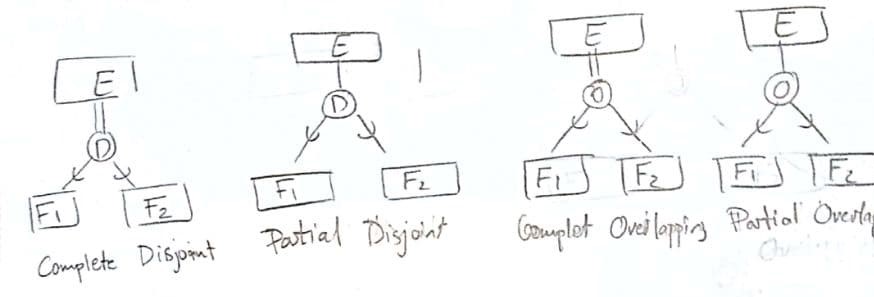 E
D
F1 F2
Complete Disjoint
E
D
F1 F2
Partial Disjoint
E
O
F1 F2
Complet Overlapping
E
O
F1 F2
Partial Overla